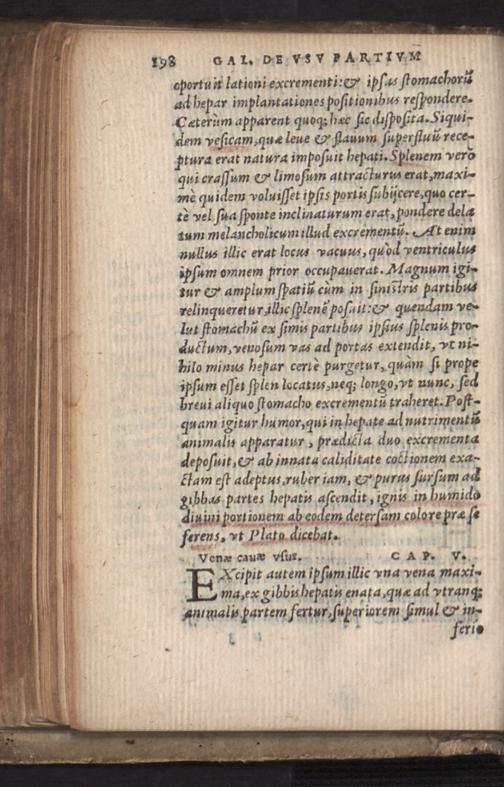 198 GAL. DE VSV PARTIVM
oportunè lationi excrementi: & ipsas stomachorũ
ad hepar implantationes positionibus respondere.
Cæterùm apparent quoq; hæc sic disposita. Siqui-
dem vesicam, quæ leue & flauum superfluũ rece-
ptura erat natura imposuit hepati. Splenem verò
qui crassum & limosum attracturus erat, maxi-
mè quidem voluisset ipsis portis subijcere, quo cer-
tè vel sua sponte inclinaturum erat, pondere dela
tum melancholicum illud excrementũ. At enim
nullus illic erat locus vacuus, quòd ventriculus
ipsum omnem prior occupauerat. Magnum igi-
tur & amplum spatiũ cùm in sinistris partibus
relinqueretur, illic splenẽ posuit: & quendam ve-
lut stomachũ ex simis partibus ipsius splenis pro-
ductum, venosum vas ad portas extendit, vt ni-
hilo minus hepar certè purgetur, quàm si prope
ipsum esset splen locatus, neq; longo, vt nunc, sed
breui aliquo stomacho excrementũ traheret. Post-
quam igitur humor, qui in hepate ad nutrimentũ
animalis apparatur, prædicta duo excrementa
deposuit, & ab innata caliditate coctionem exa-
ctam est adeptus, ruber iam, & purus sursum ad
gibbas partes hepatis ascendit, ignis in humido
diuini portionem ab eodem detersam colore præ se
ferens, vt Plato dicebat.
Venæ cauæ vsus. CAP. V.
EXcipit autem ipsum illic vna vena maxi-
ma, ex gibbis hepatis enata, quæ ad vtranq;
animalis partem fertur, superiorem simul & in-
ferio